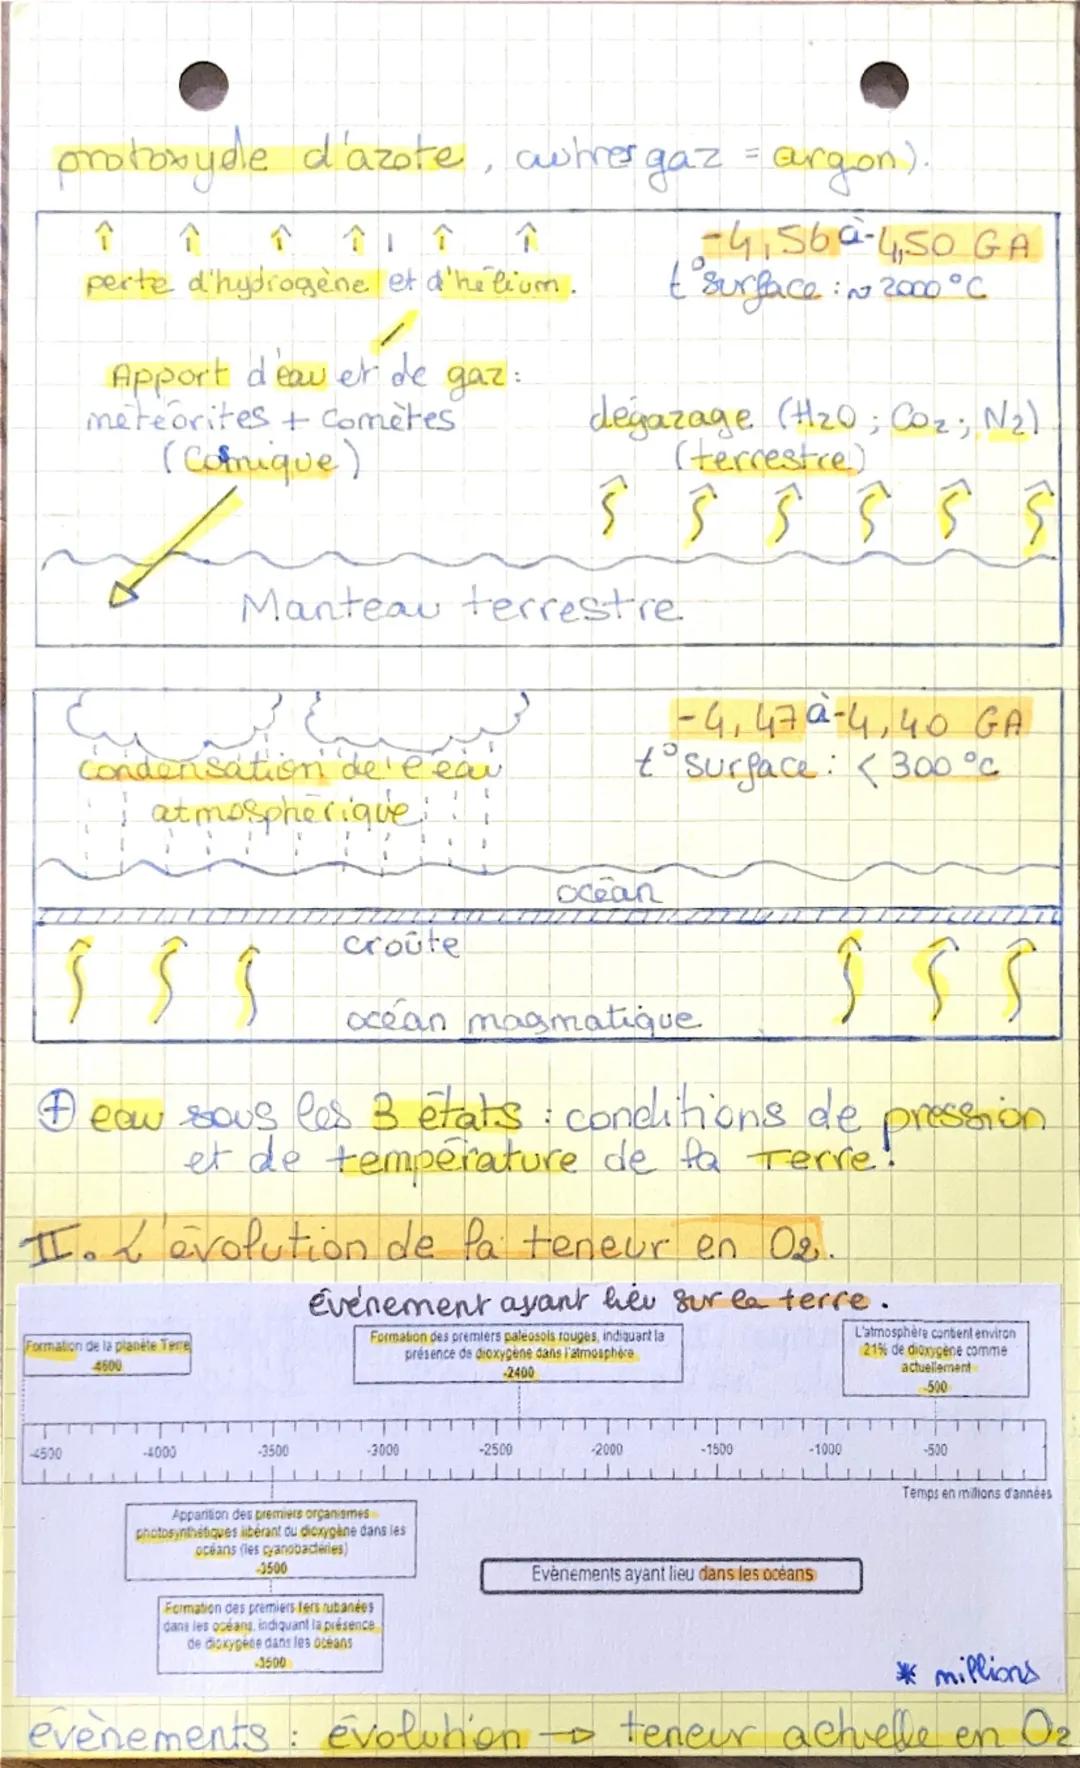 protoxyde d'azote, autres gaz = argon).
-4,56 à -4,50 GA
perte d'hydrogène et d'hélium.
t° surface : ~ 2000 °C
Apport d'eau et de gaz :
météorites + Comètes
(Cosmique)
dégazage (H2O ; CO2 ; N2)
(terrestre)
Manteau terrestre
-4,47 à -4,40 GA
condensation de l'eau
atmosphérique
t° surface : < 300 °C
océan
croûte
océan magmatique
⊕ eau sous les 3 états : conditions de pression
et de température de la Terre.
II. L'évolution de la teneur en O2.
Événement ayant lieu sur la terre.
Formation de la planète Terre
-4600
Formation des premiers paléosols rouges, indiquant la
présence de dioxygène dans l'atmosphère
-2400
L'atmosphère contient environ
21% de dioxygène comme
actuellement
-500
-4500 -4000 -3500 -3000 -2500 -2000 -1500 -1000 -500
Temps en millions d'années
Apparition des premiers organismes
photosynthétiques libérant du dioxygène dans les
océans (les cyanobactéries)
-3500
Evènements ayant lieu dans les océans
Formation des premiers fers rubanées
dans les océans, indiquant la présence
de dioxygène dans les océans
-3500
* millions
évènements : évolution → teneur actuelle en O2